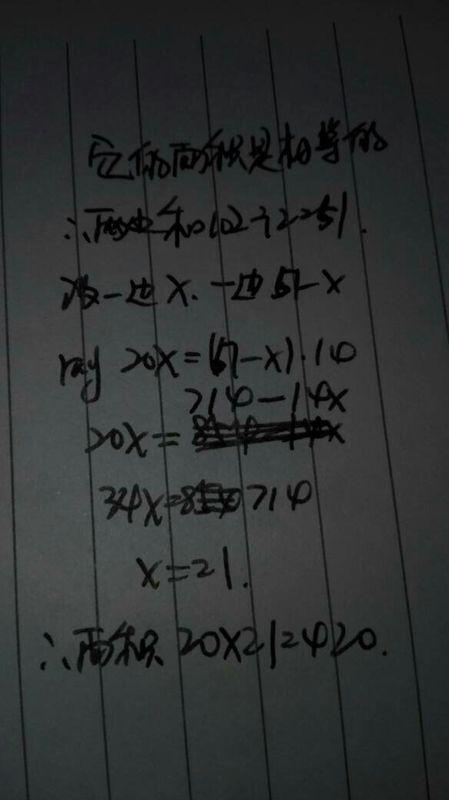 它的面积是相等的
∴两边和102÷2=51.
设一边X.一边51-X
则 20X=(51-X)·14
714-14X
20X=
34X=714
X=21.
∴面积 20X21=420.